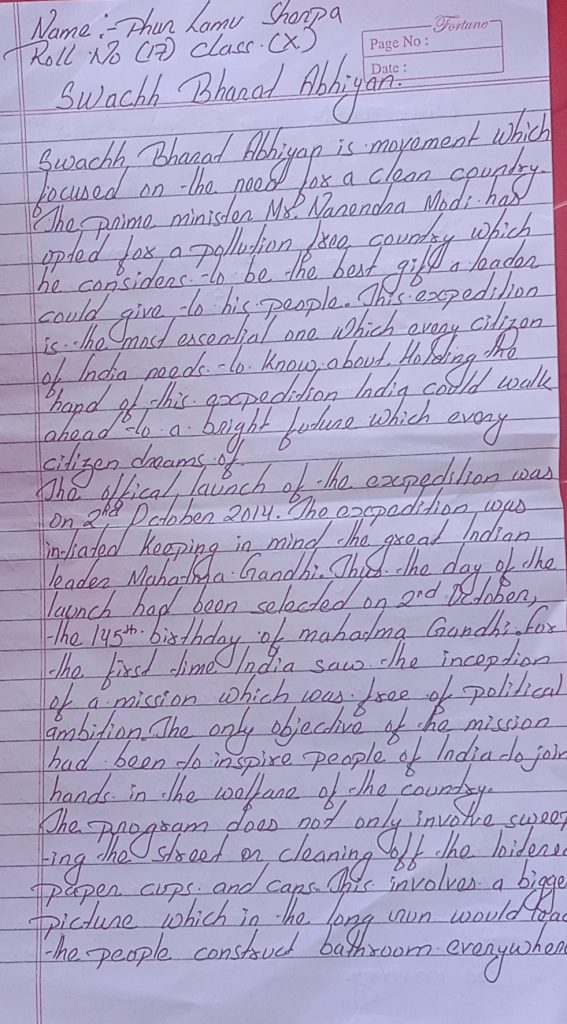 Name :- Phur Lamu Sherpa
Roll No (17) Class. (X)
Fortune
Page No :
Date :
Swachh Bharat Abhiyan.
Swachh Bharat Abhiyan is movement which
focused on the need for a clean country.
The prime minister Mr. Narendra Modi has
opted for a pollution free country which
he considers to be the best gift a leader
could give to his people. This expedition
is the most essential one which every citizen
of India needs to know about. Holding the
hand of this expedition India could walk
ahead to a bright future which every
citizen dreams of.
The offical launch of the expedition was
on 2nd October 2014. The expedition was
intiated keeping in mind the great Indian
leader Mahatma Gandhi. Thus the day of the
launch had been selected on 2nd October,
the 145th birthday of mahatma Gandhi. For
the first time India saw the inception
of a mission which was free of political
ambition. The only objective of the mission
had been to inspire people of India to join
hands in the welfare of the country.
The program does not only involve sweep
-ing the street or cleaning off the
paper cups and caps. This involves a bigge
picture which in the long run would lead
the people construct bathroom everywher